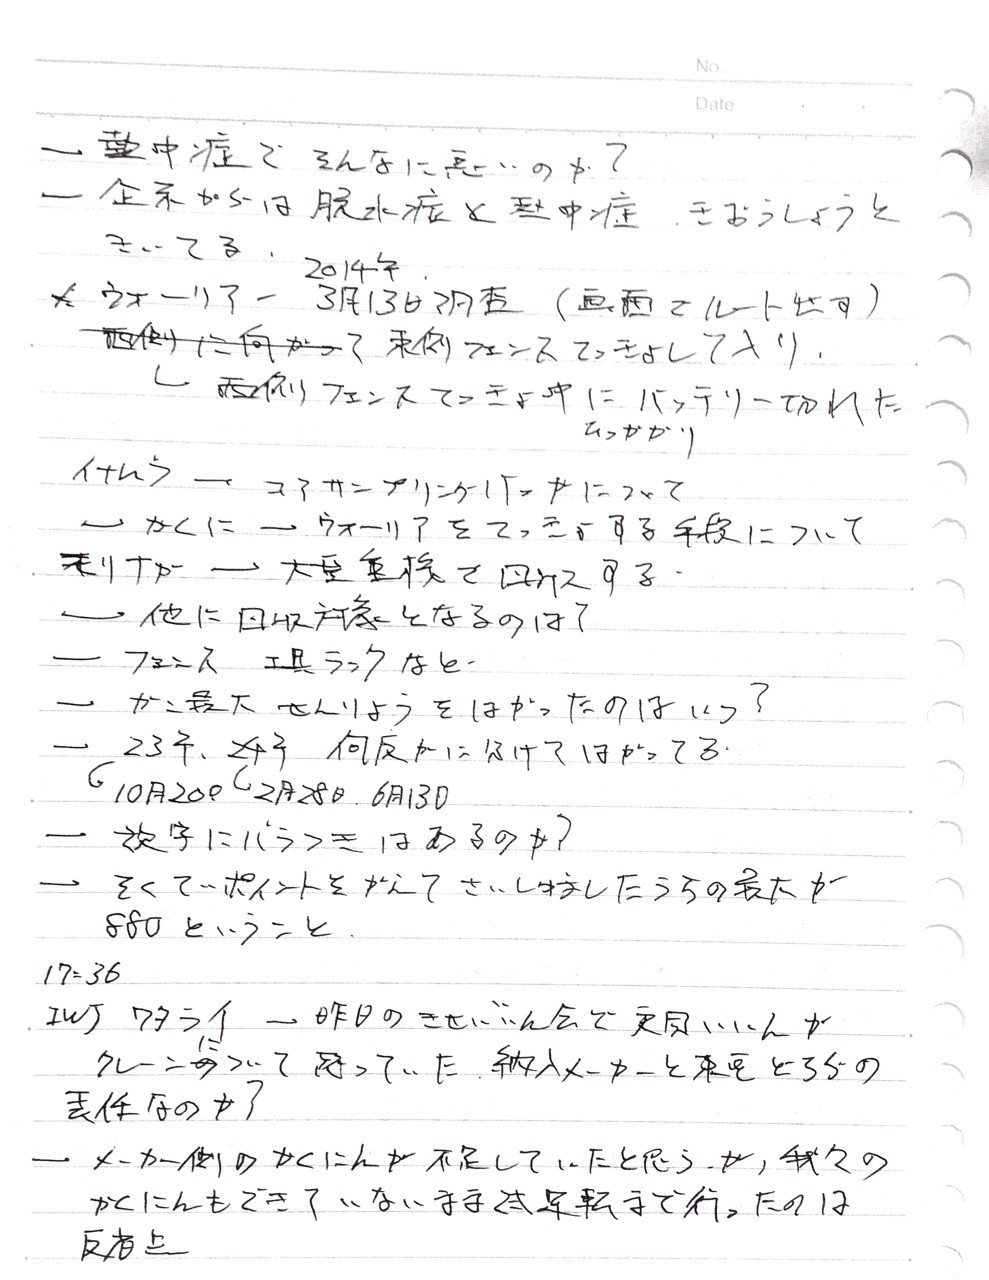 No.
Date
― 熱中症でそんなに悪いのか?
― 企系からは脱水症と熱中症、きおうしょうと
きいてる.
2014年.
× ウォーリアー 3月13日調査 (画面でルート出す)
西側に向かって 東側フェンスてっきょして入り.
└ 西側フェンスてっきょ中にバッテリー切れた
ひっかかり
イナムラ ― コアサンプリングパックについて
― かくに ― ウォーリアをてっきょする手段について
モリナガ ― 大型重機で回収する.
― 他に回収対象となるのは?
― フェンス 工具ラックなど.
― がい最大せんりょうをはかったのはいつ?
― 23年、24年 何度かに分けてはかってる.
10月20日 2月28日. 6月13日
― 数字にバラつきはあるのか?
― そくてーポイントをかえてさいしゅしたうちの最大が
880ということ.
17:36
IWJ ワタライ ― 昨日のきせいいん会で 更田いいんが
クレーンについて 語っていた. 納入メーカーと東電どちらの
責任なのか?
― メーカー側のかくにんが不足していたと思うが, 我々の
かくにんもできていないまま試運転まで行ったのは
反省点